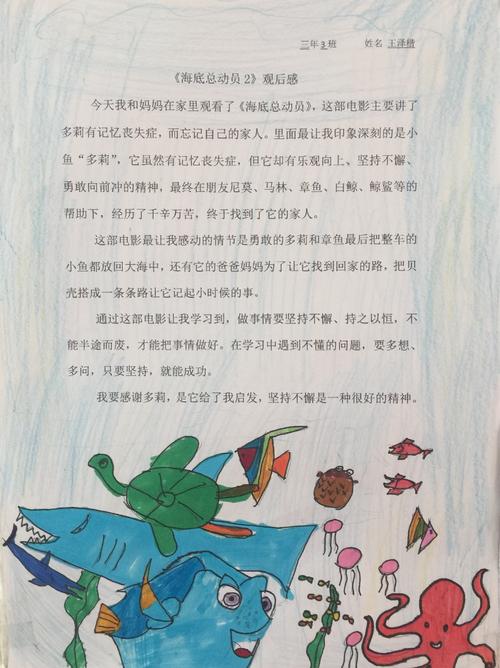 三年3班 姓名 王泽楷
《海底总动员2》观后感
今天我和妈妈在家里观看了《海底总动员》，这部电影主要讲了
多莉有记忆丧失症，而忘记自己的家人。里面最让我印象深刻的是小
鱼“多莉”，它虽然有记忆丧失症，但它却有乐观向上、坚持不懈、
勇敢向前冲的精神，最终在朋友尼莫、马林、章鱼、白鲸、鲸鲨等的
帮助下，经历了千辛万苦，终于找到了它的家人。
这部电影最让我感动的情节是勇敢的多莉和章鱼最后把整车的
小鱼都放回大海中，还有它的爸爸妈妈为了让它找到回家的路，把贝
壳搭成一条条路让它记起小时候的事。
通过这部电影让我学习到，做事情要坚持不懈、持之以恒，不
能半途而废，才能把事情做好。在学习中遇到不懂的问题，要多想、
多问，只要坚持，就能成功。
我要感谢多莉，是它给了我启发，坚持不懈是一种很好的精神。